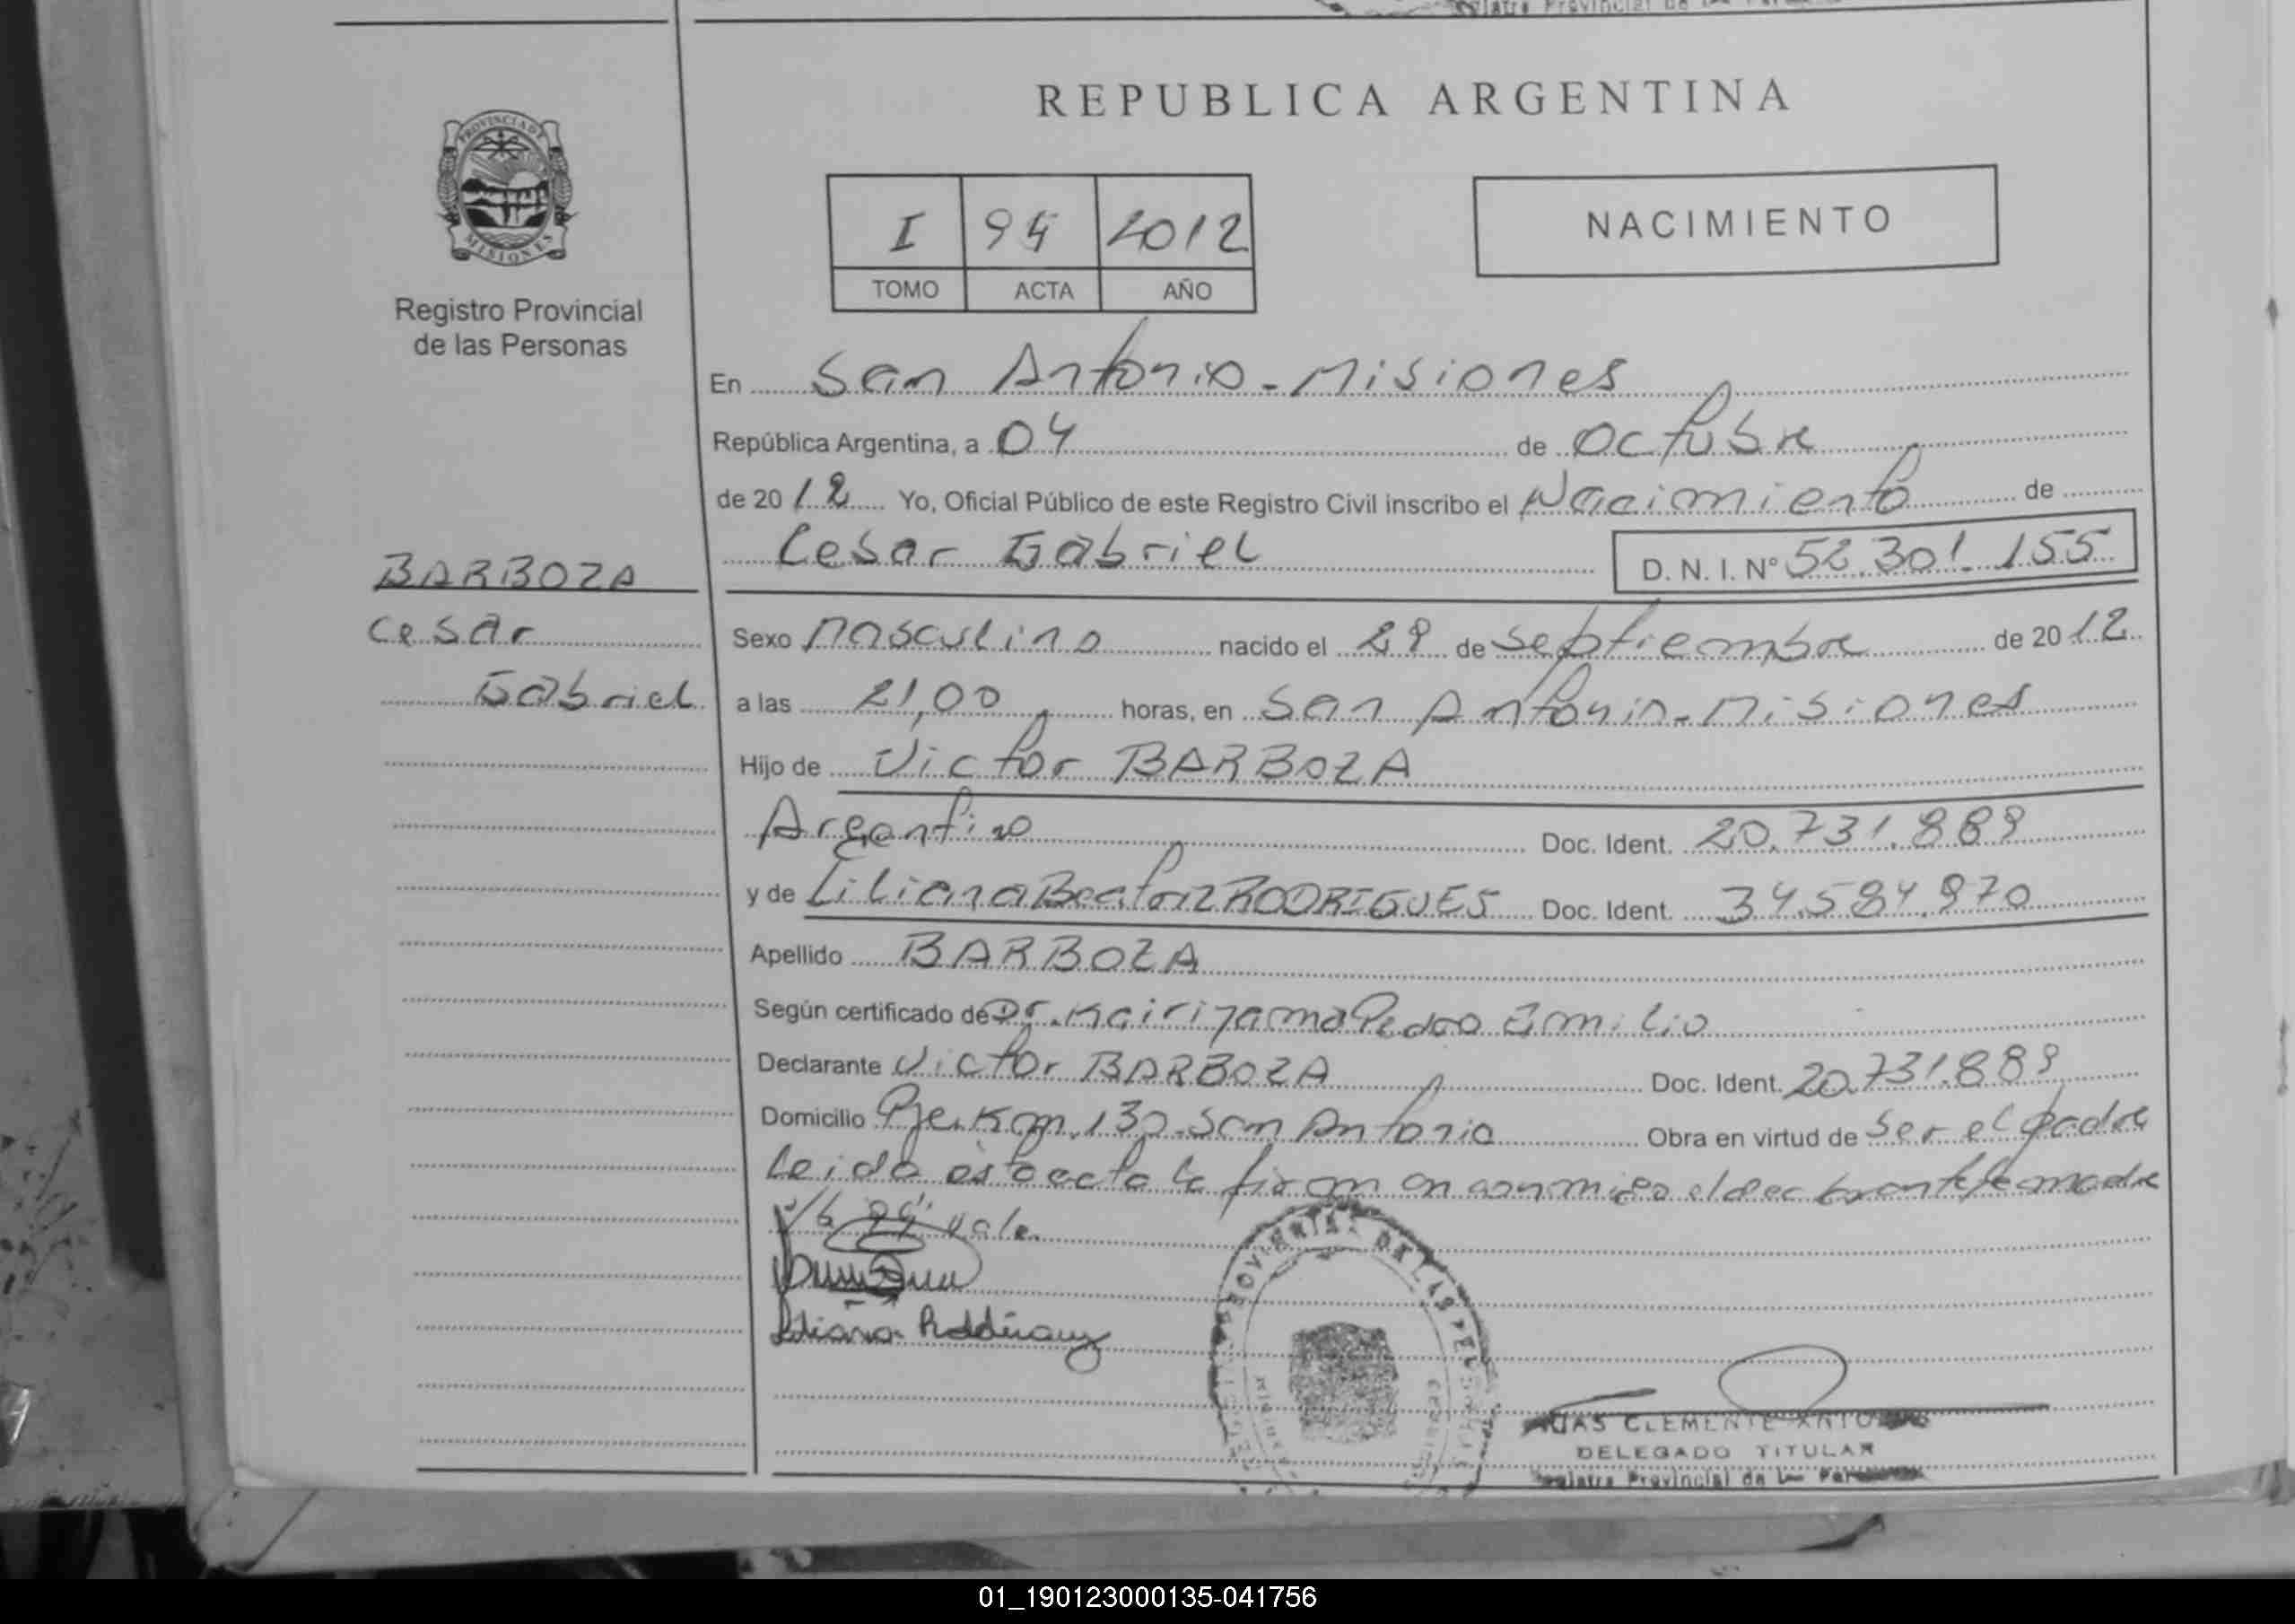 REPUBLICA ARGENTINA
PROVINCIA DE
MISIONES
Registro Provincial
de las Personas
I 94 2012
TOMO ACTA AÑO
NACIMIENTO
En San Antonio - Misiones
República Argentina, a 04 de Octubre
de 2012 Yo, Oficial Público de este Registro Civil inscribo el Nacimiento de
Cesar Gabriel D. N. I. N° 52.301.155
BARBOZA
Cesar
Gabriel
Sexo Masculino nacido el 29 de Septiembre de 2012
a las 21,00 horas, en San Antonio - Misiones
Hijo de Victor BARBOZA
Argentino Doc. Ident. 20.731.889
y de Liliana Beatriz RODRIGUES Doc. Ident. 34.584.970
Apellido BARBOZA
Según certificado de Dr. Kairiyama Pedro Emilio
Declarante Victor BARBOZA Doc. Ident. 20.731.889
Domicilio Pje. Km. 130 - San Antonio Obra en virtud de Ser el padre
Leida esta acta la firman conmigo el declarante y la madre
vale.
Liliana
DELEGADO TITULAR
Provincial de
01_190123000135-041756